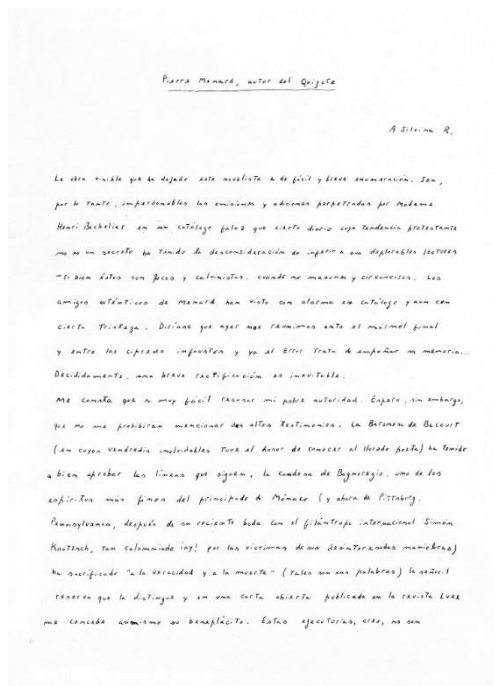 Pierre Menard, autor del Quijote
A Silvina R.
La obra visible que ha dejado este novelista es de fácil y breve enumeración. Son,
por lo tanto, imperdonables las omisiones y adiciones perpetradas por Madame
Henri Bachelier en un catálogo falaz que cierto diario cuya tendencia protestante
no es un secreto ha tenido la desconsideración de inferir a sus deplorables lectores
-si bien éstos son pocos y calvinistas, cuando no masones y circuncisos. Los
amigos auténticos de Menard han visto con alarma ese catálogo y aun con
cierta tristeza. Diríase que ayer nos reunimos ante el mármol final
y entre los cipreses infaustos y ya el Error trata de empañar su memoria...
Decididamente, una breve rectificación es inevitable.
Me consta que es muy fácil recusar mi pobre autoridad. Espero, sin embargo,
que no me prohibirán mencionar dos altos testimonios. La Baronesa de Bacourt
(en cuyos vendredis inolvidables tuve el honor de conocer al llorado poeta) ha tenido
a bien aprobar las líneas que siguen. La condesa de Bagnoregio, uno de los
espíritus más finos del principado de Mónaco (y ahora de Pittsburg,
Pennsylvania, después de su reciente boda con el filántropo internacional Simón
Kautzsch, tan calumniado ¡ay! por las víctimas de sus desinteresadas maniobras)
ha sacrificado "a la veracidad y a la muerte" (tales son sus palabras) la señoril
reserva que la distingue y en una carta abierta publicada en la revista Luxe
me concede asimismo su beneplácito. Estas ejecutorias, creo, no son